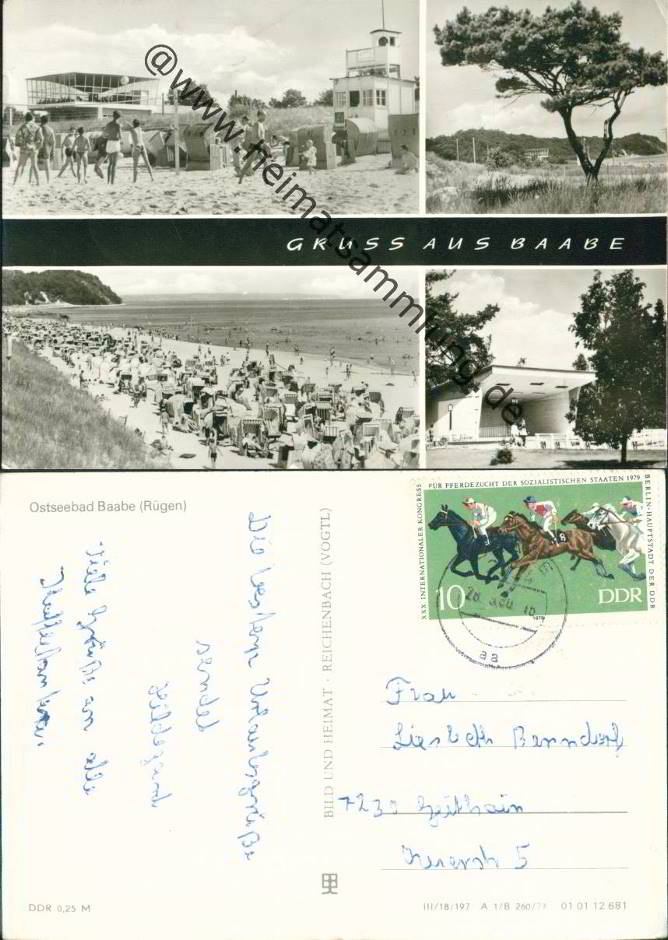 @www.heimatsammlung.de
GRUSS AUS BAABE
Ostseebad Baabe (Rügen)
XXX INTERNATIONALER KONGRESS
FÜR PFERDEZUCHT DER SOZIALISTISCHEN STAATEN 1979
BERLIN-HAUPTSTADT DER DDR
10
DDR
1979
aa
Die besten Urlaubsgrüße
sendet
Hildegard
Viele Grüße an alle
BILD UND HEIMAT · REICHENBACH (VOGTL)
Frau
Liesbeth Benndorf
7230 Geithain
5
DDR 0,25 M
III/18/197 A 1/B 260/77 01 01 12 681